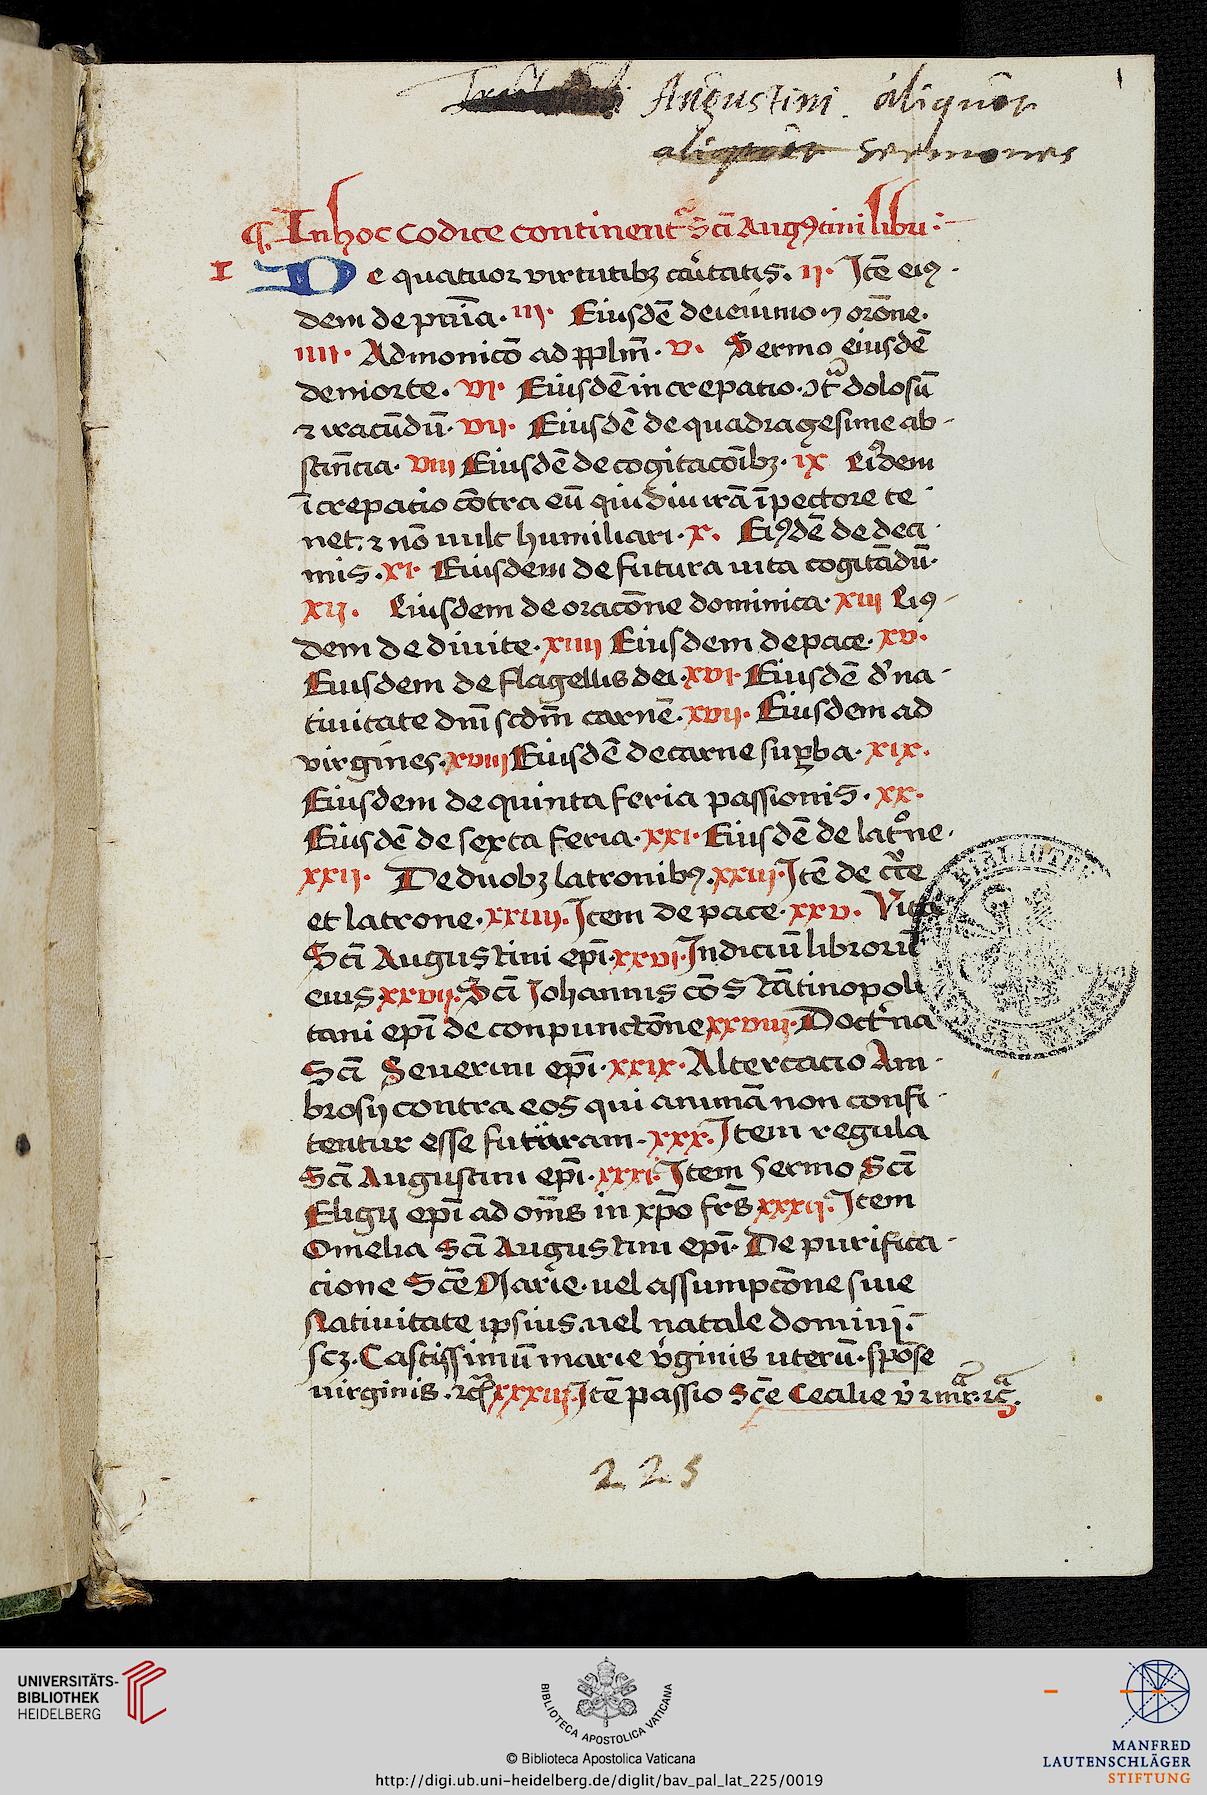 Augustini aliquot
aliquot sermones
1
¶ In hoc codice continent᷑ Sci̅ Augꝰtini libri :
I De quatuor virtutibꝫ caritatis. II. Ite̅ eiꝰ
dem de pn̅ia. III. Eiusde̅ de ieiunio ⁊ oro̅ne.
IIII. Admonico̅ ad pplm̅. V. Sermo eiusde̅
de morte. VI. Eiusde̅ increpatio ꝯt͛ dolosu̅
⁊ iracu̅du̅. VII. Eiusde̅ de quadragesime ab-
stine̅cia. VIII Eiusde̅ de cogitaco̅ibꝫ. IX Eiꝰdem
i̅crepatio co̅tra eu̅ qui diu ira̅ i̅ pectore te-
net. ⁊ no̅ uult humiliari. X. Eiꝰde̅ de deci-
mis. XI. Eiusdem de futura uita cogita̅du̅.
XII. Eiusdem de oraco̅ne dominica. XIII Eiꝰ-
dem de diuite. XIIII Eiusdem de pace. XV.
Eiusdem de flagellis dei. XVI. Eiusde̅ d' na-
tiuitate dn̅i scdm̅ carne̅. XVII. Eiusdem ad
virgines. XVIII Eiusde̅ de carne suꝑba. XIX.
Eiusdem de quinta feria passionis. XX.
Eiusde̅ de sexta feria. XXI. Eiusde̅ de lat°ne.
XXII. De duobꝫ latronibꝰ. XXIII. Ite̅ de cr̅ce
et latrone. XXIIII. Item de pace. XXV. Vita
Sci̅ Augustini epi̅. XXVI. Indiciu̅ libroru̅
eius XXVII. Sci̅ Johannis co̅sta̅tinopoli
tani epi̅ de conpuncto̅ne XXVIII. Doct'na
Sci̅ Seuerini epi̅. XXIX. Altercacio Am-
brosij contra eos qui anima̅ non confi-
tentur esse futuram. XXX. Item regula
Sci̅ Augustini epi̅. XXXI. Item Sermo Sci̅
Eligij epi̅ ad om̅s in xp̅o fr̅s XXXII. Item
Omelia Sci̅ Augustini epi̅. De purifica-
cione Sce̅ Marie. uel assumpco̅ne siue
Natiuitate ipsius. uel natale domini.
scꝫ. Castissimu̅ marie v'ginis uteru̅. sponse
uirginis. ⁊c̅ XXXIII. Ite̅ passio Sce̅ Cecilie v' ⁊ mr̅. ⁊c̅.
225
UNIVERSITÄTS-
BIBLIOTHEK
HEIDELBERG
BIBLIOTECA APOSTOLICA VATICANA
© Biblioteca Apostolica Vaticana
http://digi.ub.uni-heidelberg.de/diglit/bav_pal_lat_225/0019
MANFRED
LAUTENSCHLÄGER
STIFTUNG